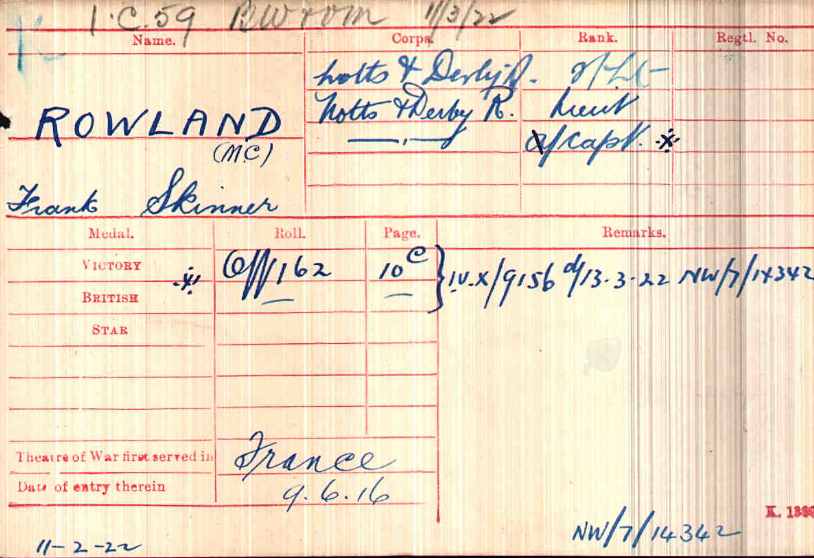 I.C.59 BW room 11/3/22
Name. Corps. Rank. Regtl. No.
Notts & Derby R. 2/Lt
ROWLAND Notts & Derby R. Lieut
(MC) —„— A/Capt. ※
Frank Skinner
Medal. Roll. Page. Remarks.
VICTORY ※ Off/162 10 C } IV.X/9156 d/13-3-22 NW/7/14342
BRITISH — —
STAR
Theatre of War first served in France
Date of entry therein 9.6.16
K. 1380
NW/7/14342
11-2-22